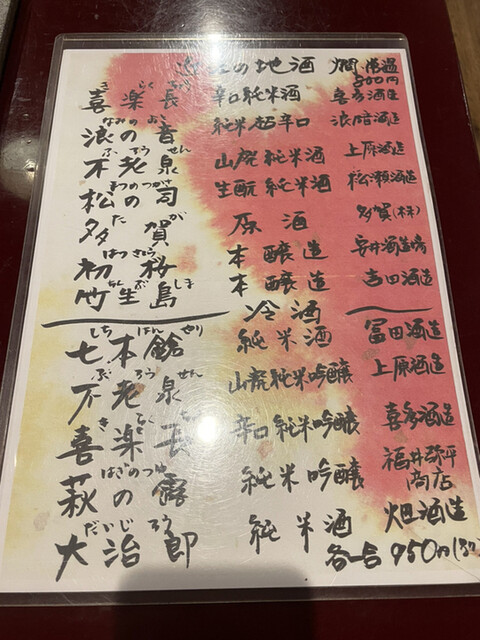 の地酒 燗 常温
800円
喜楽長 辛口純米酒 喜多酒造
きらく
浪の音 純米超辛口 浪の音酒造
なみのおと
不老泉 山廃純米酒 上原酒造
ふろうせん
松の司 生酛純米酒 松瀬酒造
まつのつかさ
多賀 原酒 多賀(株)
たが
初桜 本醸造 安井酒造場
はつざくら
竹生島 本醸造 吉田酒造
ちくぶしま
冷酒
七本鎗 純米酒 冨田酒造
しちほんやり
不老泉 山廃純米吟醸 上原酒造
ふろうせん
喜楽長 辛口純米吟醸 喜多酒造
きらく
萩の露 純米吟醸 福井弥平商店
はぎのつゆ
大治郎 純米酒 畑酒造
だいじろう
各一合 950円